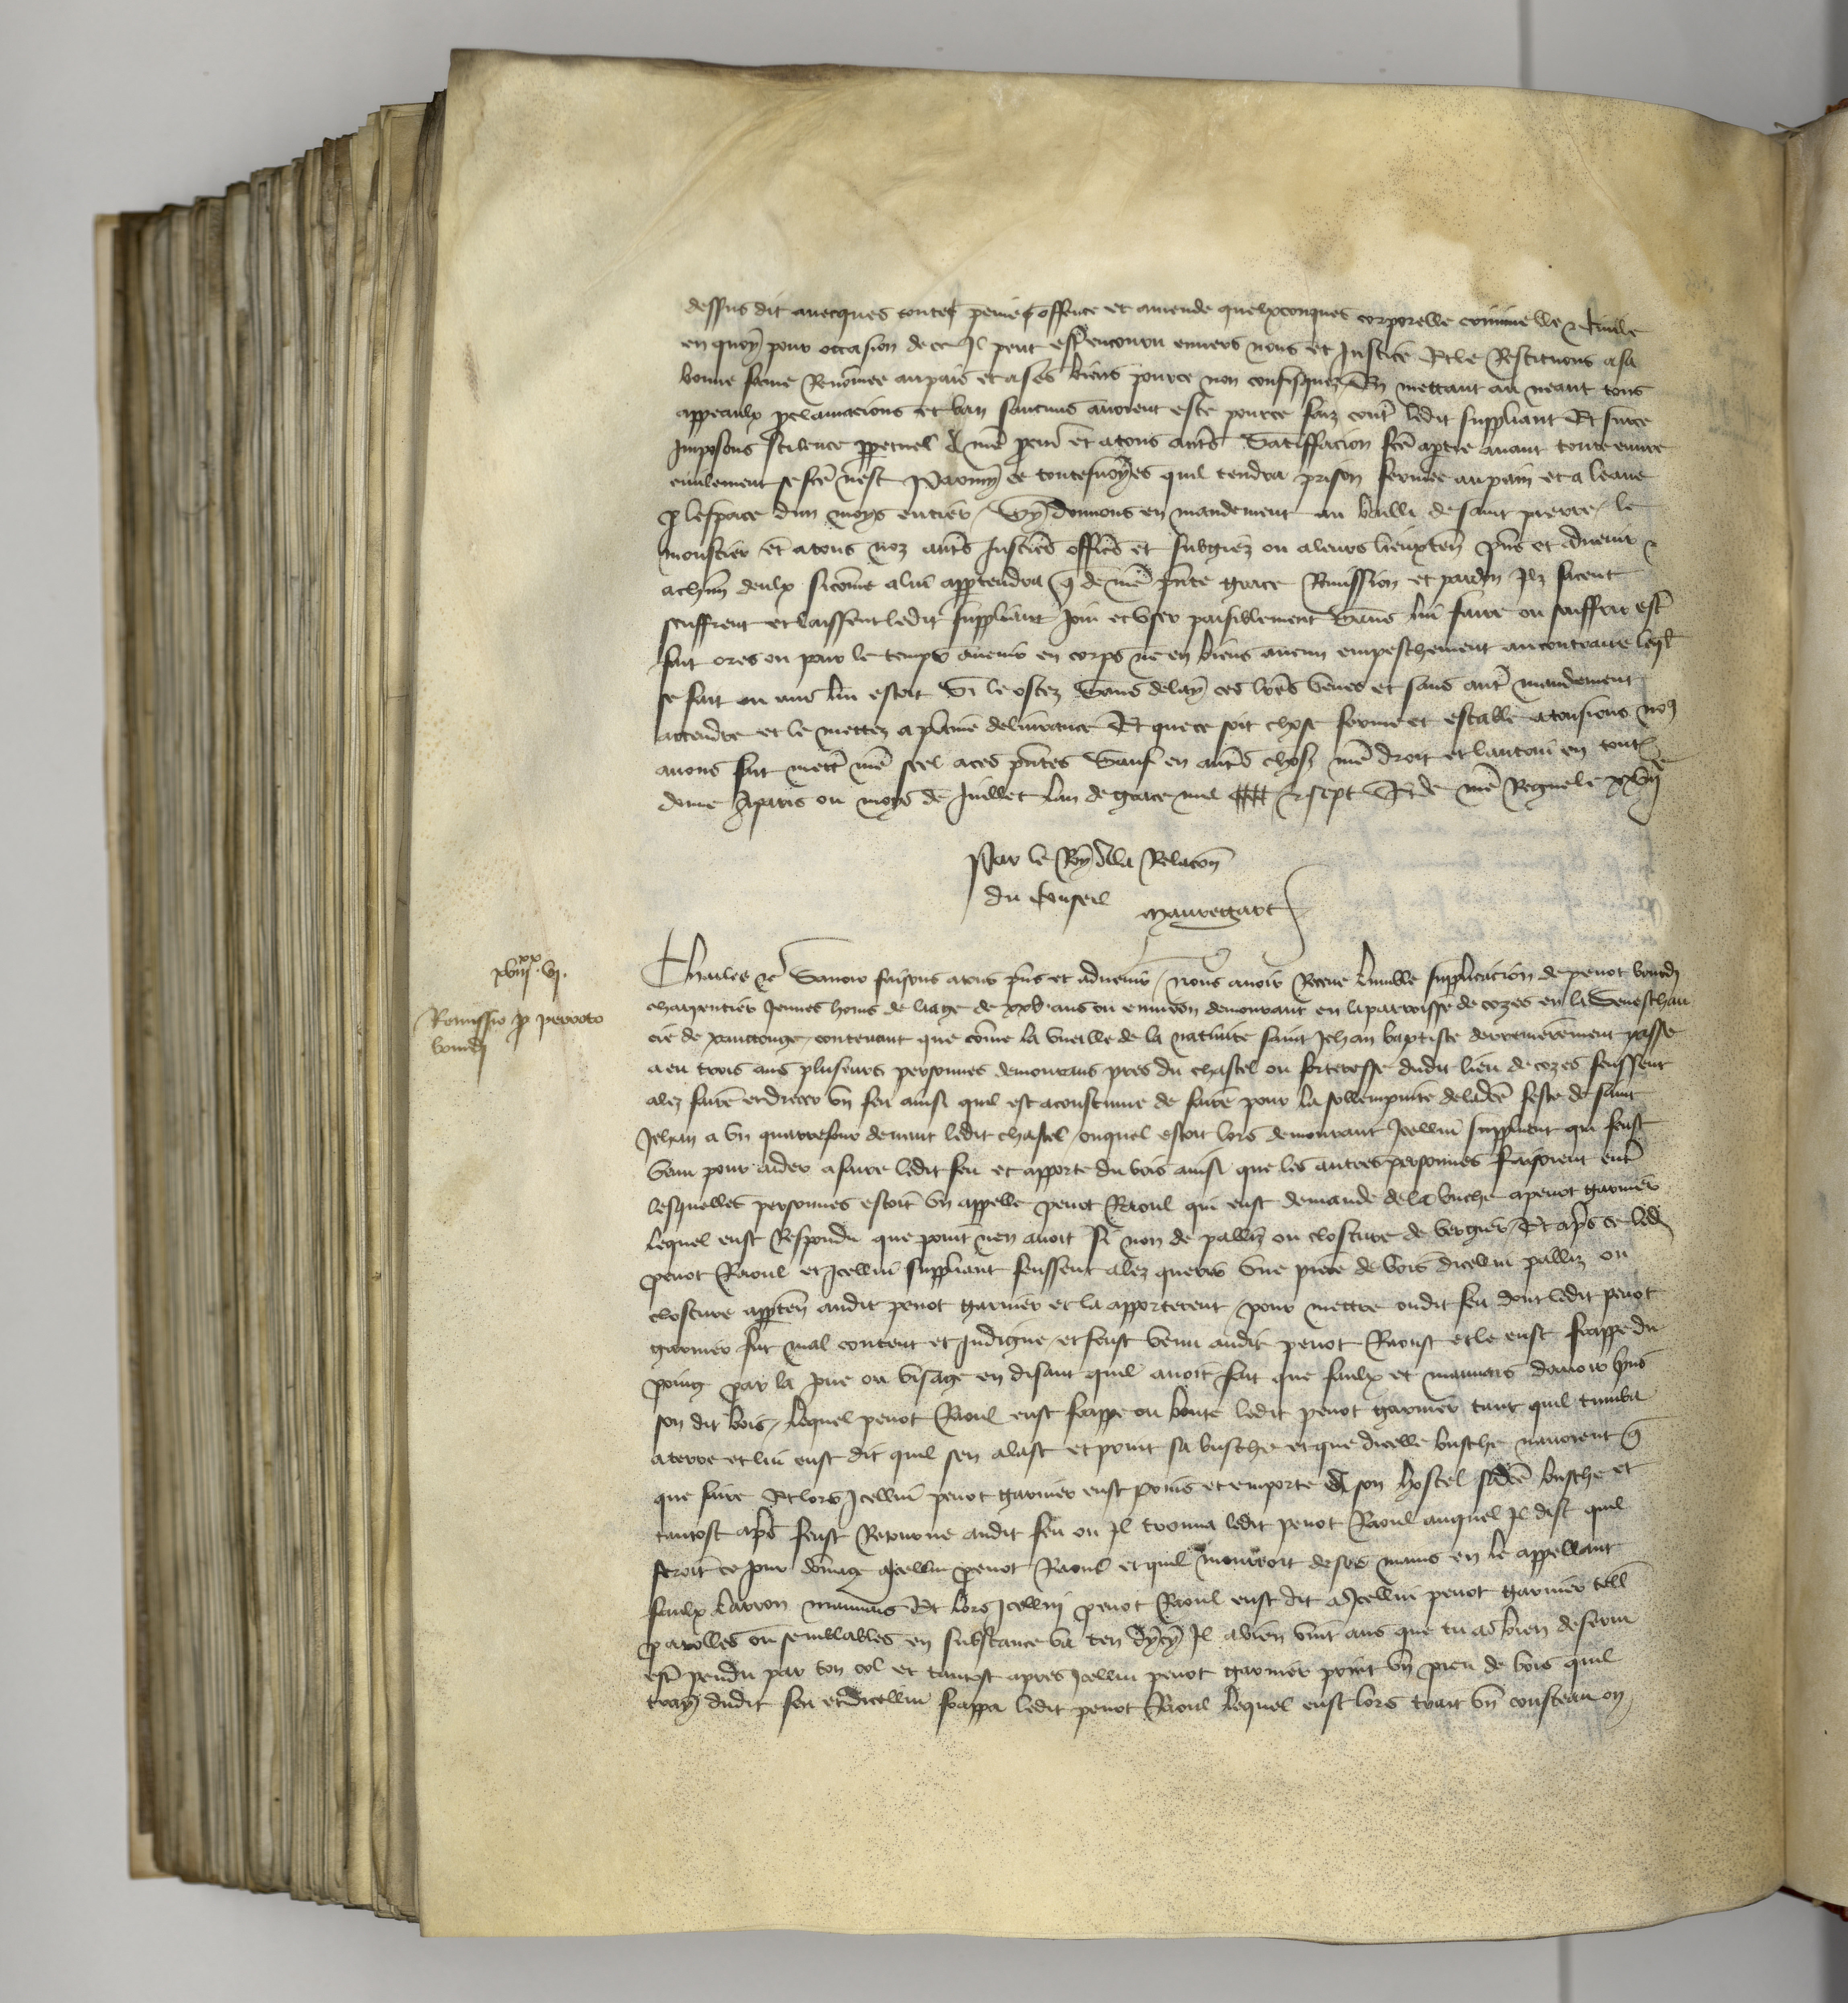 dessus dit avecques toute peine offence et amende quelxconques corporelle criminelle & civile
en quoy pour occasion de ce Il peut estre encouru envers nous et Justice Et le Restituons a sa
bonne fame Renōmee au pais et a ses biens pource non confisquez En mettant au neant tous
appeaulx proclamacions et ban saucuns avoient este pource faiz contr ledit suppliant Et surce
Imposons scilence ppetuel a nrē procur et a tous autrs Satiffacion fctē a ptie avant toute euvre
civilement se fctē nest Parmy ce toutesvoyes quil tendra prison fermee au pain et a leaue
p lespace dun moys entier Sy donnons en mandement au bailli de saint pierre le
moustier et a tous noz autrs Justic̄s offic̄s et subgiez ou a leurs lieuxten̄ pn̄s et advenir &
a chūn deulx sicōme a lui apptendra q de nrē pn̄te grace Remission et pardon Ilz facent
seuffrent et laissent ledit suppliant Joir et user paisiblement Sans lui faire ou souffrir estr̄
fait ores ou pour le temps avenir en corps ne en biens aucun empeschement au contraire leql
se fait ou mis lui estoit Si le ostez Sans delay ces lett̄s veues et sans autr̄ mandement
attendre et le mettez a plaine delivrance Et que ce soit chose ferme et estable a tousiours noꝯ
avons fait mettr̄ nrē seel a ces pn̄tes Sauf en autrs choses nrē droit et lautrui en toutes
donne A paris ou moys de Juillet Lan de grace mil cccc & sept Et de nrē Regne le xxvije
Par le Roy a la Relacōn
du Conseil Mauregart
xviijxx vj.
Remissio p perroto
bourdj
Charles &c Savoir faisons a touz pn̄s et advenir Nous avoir Receue lumble supplicacion de perrot bourdj
charpentier Jeunes homs de liage de xxv ans ou environ demourant en la parroisse de cozes en la Seneschau
cie de xanctonge contenant que cōme la vueille de la nativite saint Jehan baptiste derrenierement passe
a eu trois ans plusieurs personnes demourans pres du chastel ou forteresse dudit lieu de cozes feussent
alez faire et drecer un feu ainsi quil est acoustume de faire pour la sollempnite de ladctē feste de saint
Jehan a un quarrefour devant ledit chastel ouquel estoit lors demourant Icellui suppliant qui feust
venu pour aider a faire ledit feu et apporte du bois ainsi que les autres personnes faisoient entr̄
lesquelles personnes estoit un appelle perrot Raoul qui eust demande de la buche a perrot garnier
lequel eust Respondu que point nen avoit si non de palliz ou closture de vergier Et aprs ce ledit
perrot Raoul et Icellui suppliant feussent alez querir une piece de bois dicellui palliz ou
closture apptēn audit perrot garnier et la apporterent pour mettre oudit feu dont ledit perrot
garnier fut mal content et Indigne et feust venu audit perrot Raoul et le eust frappe du
poing par la Joue ou visage en disant quil avoit fait que faulx et mauvais davoir prins
son dit bois lequel perrot Raoul eust frappe ou boute ledit perrot garnier tant quil tumba
a terre et lui eust dit quil sen alast et prinst sa busche et que dicelle busche navoient q
que faire Et lors Icellui perrot garnier eust prins et emporte a son hostel sadctē busche et
tantost aprs feust Retourne audit feu ou Il trouva ledit perrot Raoul auquel Il dist quil
feroit ce Jour dōmage a Icellui perrot Raoul et quil mourroit de ses mains en le appellant
faulx larron mauvais Et lors Icellui perrot Raoul eust dit a Icellui perrot garnier tell
parolles ou semblables en substance va ten dycy Il a bien vint ans que tu as bien desservi
estr̄ pendu par ton col et tantost apres Icellui perrot garnier print un pieu de bois quil
tray dudit feu et dicellui frappa ledit perrot Raoul lequel eust lors trait un cousteau ou